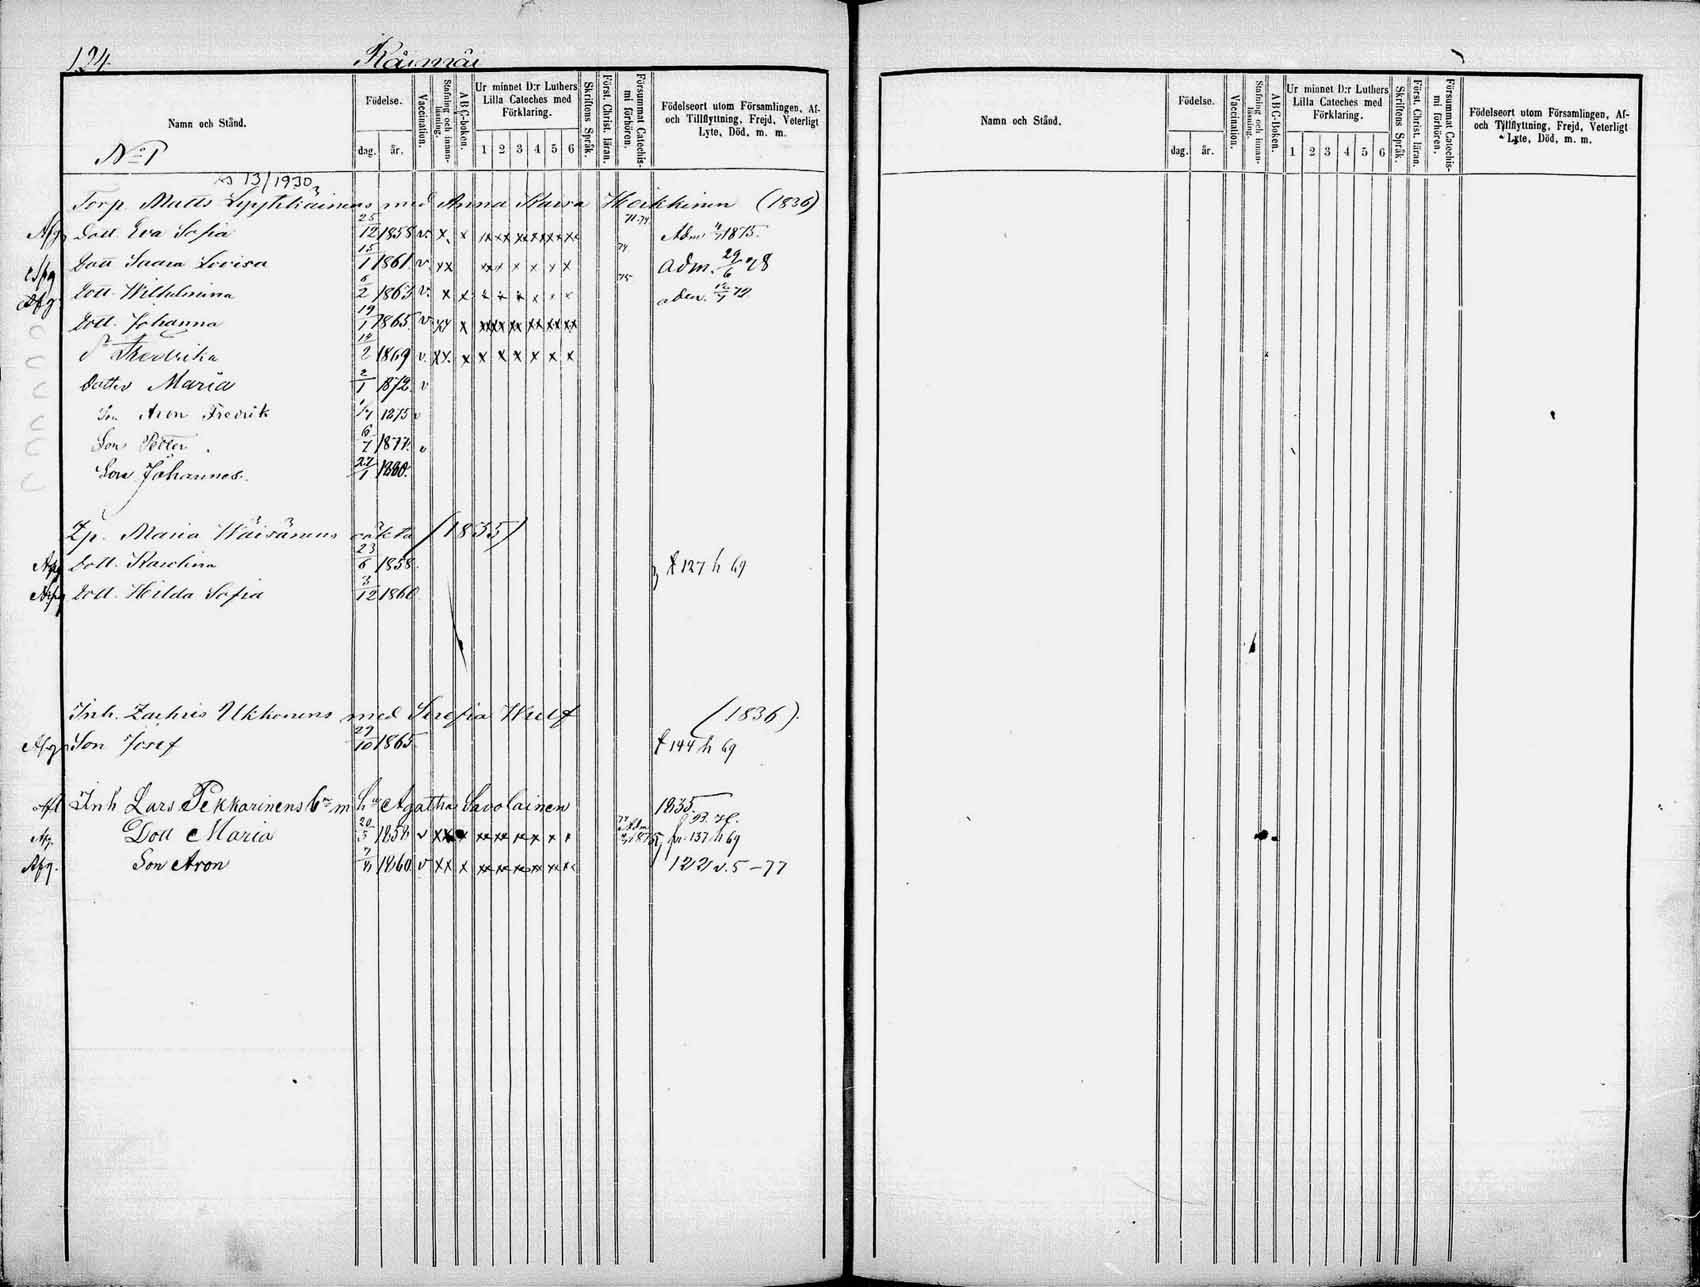 124.
Råimäi
Namn och Stånd.
Födelse.
dag.
år.
Vaccination.
Stafning och innanläsning.
A B C-boken.
Ur minnet D:r Luthers Lilla Cateches med Förklaring.
1 2 3 4 5 6
Skriftens Språk.
Först. Christ. läran.
Försummat Catechismi förhören.
Födelseort utom Församlingen, Af- och Tillflyttning, Frejd, Veterligt Lyte, Död, m. m.
No 1
13/1930
Torp. Matts med Anna Kaisa Heikkinen (1836)
Afg Dott. Eva Sofia 25/12 1858 v. x x Adm 1875.
Afg Dott Saara Lovisa 15/1 1861 v xx 74 adm. 29/6 78
Afg Dott. Wilhelmina 6/2 1863 v. x x 75 adm.
Dott. Johanna 19/1 1865 v xx x
Fredrika 14/2 1869 v. xx. x x x x x x x
Dotter Maria 2/1 1872. v
Son Aron Fredrik 1875 v
Son Petter. 6/7 1877. v
Son Johannes. 27/1 1880.
Maria Wäisänens (1835)
Afg Dott. Karolina 23/6 1858. f 127 h 69
Afg Dott. Hilda Sofia 3/12 1860
Inh. Zachris Ukkonens med Serafia Wulf (1836).
Afg Son Josef 29/10 1865 f 144 h 69
Afl Inh Lars Pekkarinens Agatha Savolainen 1835.
Afg. Dott Maria 20/5 1858 v xx 137 h 69
Afg. Son Aron 1860 v xx x 122 v. 5-77
Namn och Stånd.
Födelse.
dag.
år.
Vaccination.
Stafning och innanläsning.
A B C-boken.
Ur minnet D:r Luthers Lilla Cateches med Förklaring.
1 2 3 4 5 6
Skriftens Språk.
Först. Christ. läran.
Försummat Catechismi förhören.
Födelseort utom Församlingen, Af- och Tillflyttning, Frejd, Veterligt Lyte, Död, m. m.